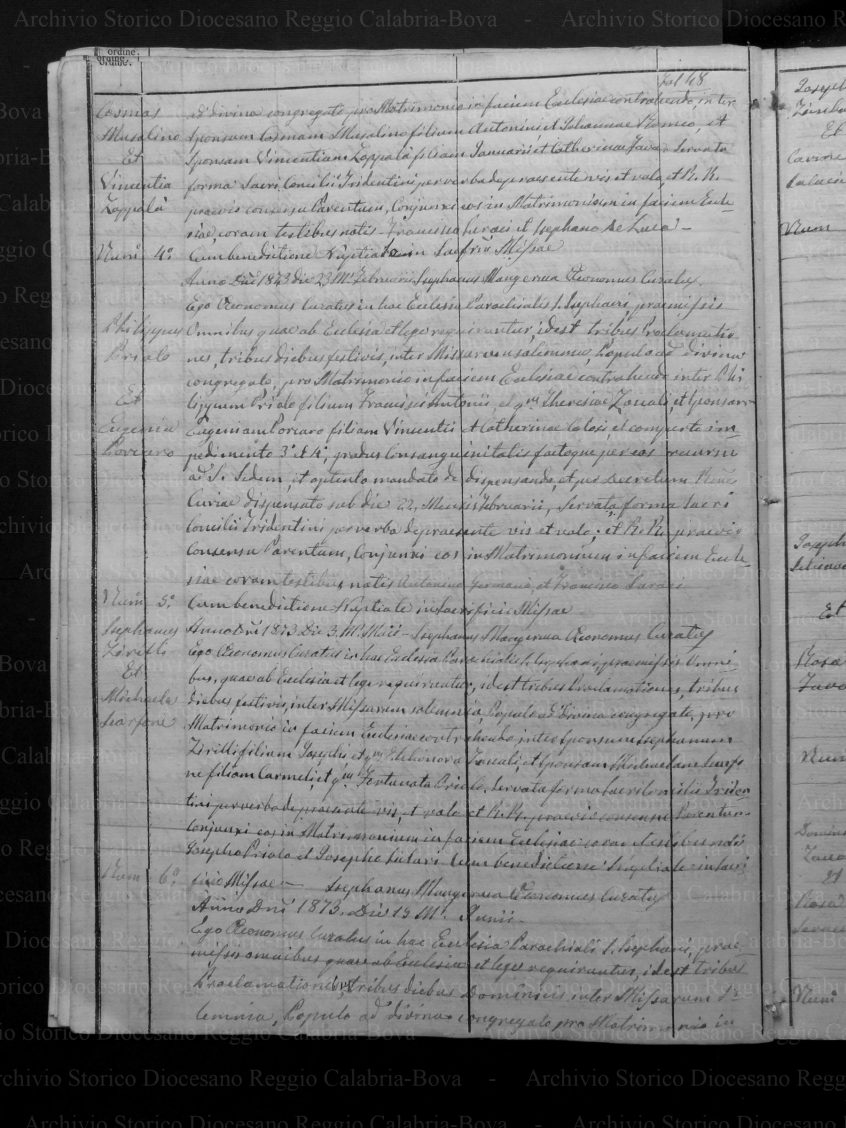 N. ordine.
Fol 48
Cosmas
Musolino
Et
Vincentia
Zappalà
ad divina congregato pro Matrimonio in faciem Ecclesiae contrahendo, inter
Sponsum Cosmam Musolino filium Antonini et Johannae Romeo, et
Sponsam Vincentiam Zappalà filiam Januarii et Catherinae Servata
forma Sacri Concilii Tridentini per verba de praesente vis et volo, et R. R.
praevio consensu Parentum, Conjunxi eos in Matrimonium in faciem Eccle-
siae, coram testibus notis Francisco et Stephano De Luca -
Num 4°
Cum benedictione Nuptiale in Sacfriu Missae
Anno Dni 1873 die 23 Ms. Februarii Stephanus Mangerua Œconomus Curatus
Philippus
Priolo
Et
Eugenia
Porcaro
Ego Œconomus Curatus in hac Ecclesia Parochialis S. Stephani, praemissis
Omnibus quae ab Ecclesia et lege requirantur, id est tribus Proclamatio-
nes, tribus diebus festivis, inter Missarum solemnia Populo ad divina
congregato, pro Matrimonio in faciem Ecclesiae contrahendo inter Phi-
lippum Priolo filium Francisci Antonii, et qm Theresiae Zoccali, et Sponsam
Eugeniam Porcaro filiam Vincentii et Catherinae et comperto im-
pedimento 3° et 4° gradus Consanguinitatis factoque per eos recursu
ad S. Sedem, et optento mandato de dispensando, et per decretum
Curiae dispensato sub die 22, Mensis Februarii, Servata forma Sacri
Concilii Tridentini per verba de praesente vis et volo; et R. R. praevio
Consensu Parentum, Conjunxi eos in Matrimonium in faciem Eccle-
siae coram testibus notis et Francisco
Num 5°
Cum benedictione Nuptiale in Sacrificio Missae
Stephanus
Zirilli
Et
Michaela
Scarfone
Anno Dni 1873 Die 3. Ms. Maii - Stephanus Mangerua Œconomus Curatus
Ego Œconomus Curatus in hac Ecclesia Parochialis S. Stephani, praemissis Omni-
bus, quae ab Ecclesia et lege requirantur, id est tribus Proclamationes, tribus
diebus festivis, inter Missarum solemnia, Populo ad Divina congregato, pro
Matrimonio in faciem Ecclesiae contrahendo inter Sponsum Stephanum
Zirilli filium Josephi, et qm Elehonora Zoccali, et Sponsam Michaelam Scarfo-
ne filiam Carmeli, et qm Fortunata Priolo, Servata forma Sacri Concilii Triden-
tini per verba de praesente vis, et volo et R. R. praevio consensu Parentum
Conjunxi eos in Matrimonium in faciem Ecclesiae coram testibus notis
Josepho Priolo et Josepho Cum benedictione Nuptiale in Sacri-
Num 6°
ficio Missae - Stephanus Mangerua Œconomus Curatus
Anno Dni 1873. Die 15 Ms. Junii -
Ego Œconomus Curatus in hac Ecclesia Parochiali S. Stephani, prae-
missis omnibus quae ab Ecclesia et lege requirantur, id est tribus
Proclamationibus, tribus diebus Dominicis inter Missarum So-
lemnia, Populo ad divina congregato pro Matrimonio in
Joseph
Et
Num
Joseph
Et
Rosa
Num
Et
Rosa
Num
Archivio Storico Diocesano Reggio Calabria-Bova - Archivio Storico Diocesano Reggio Calabria-Bova